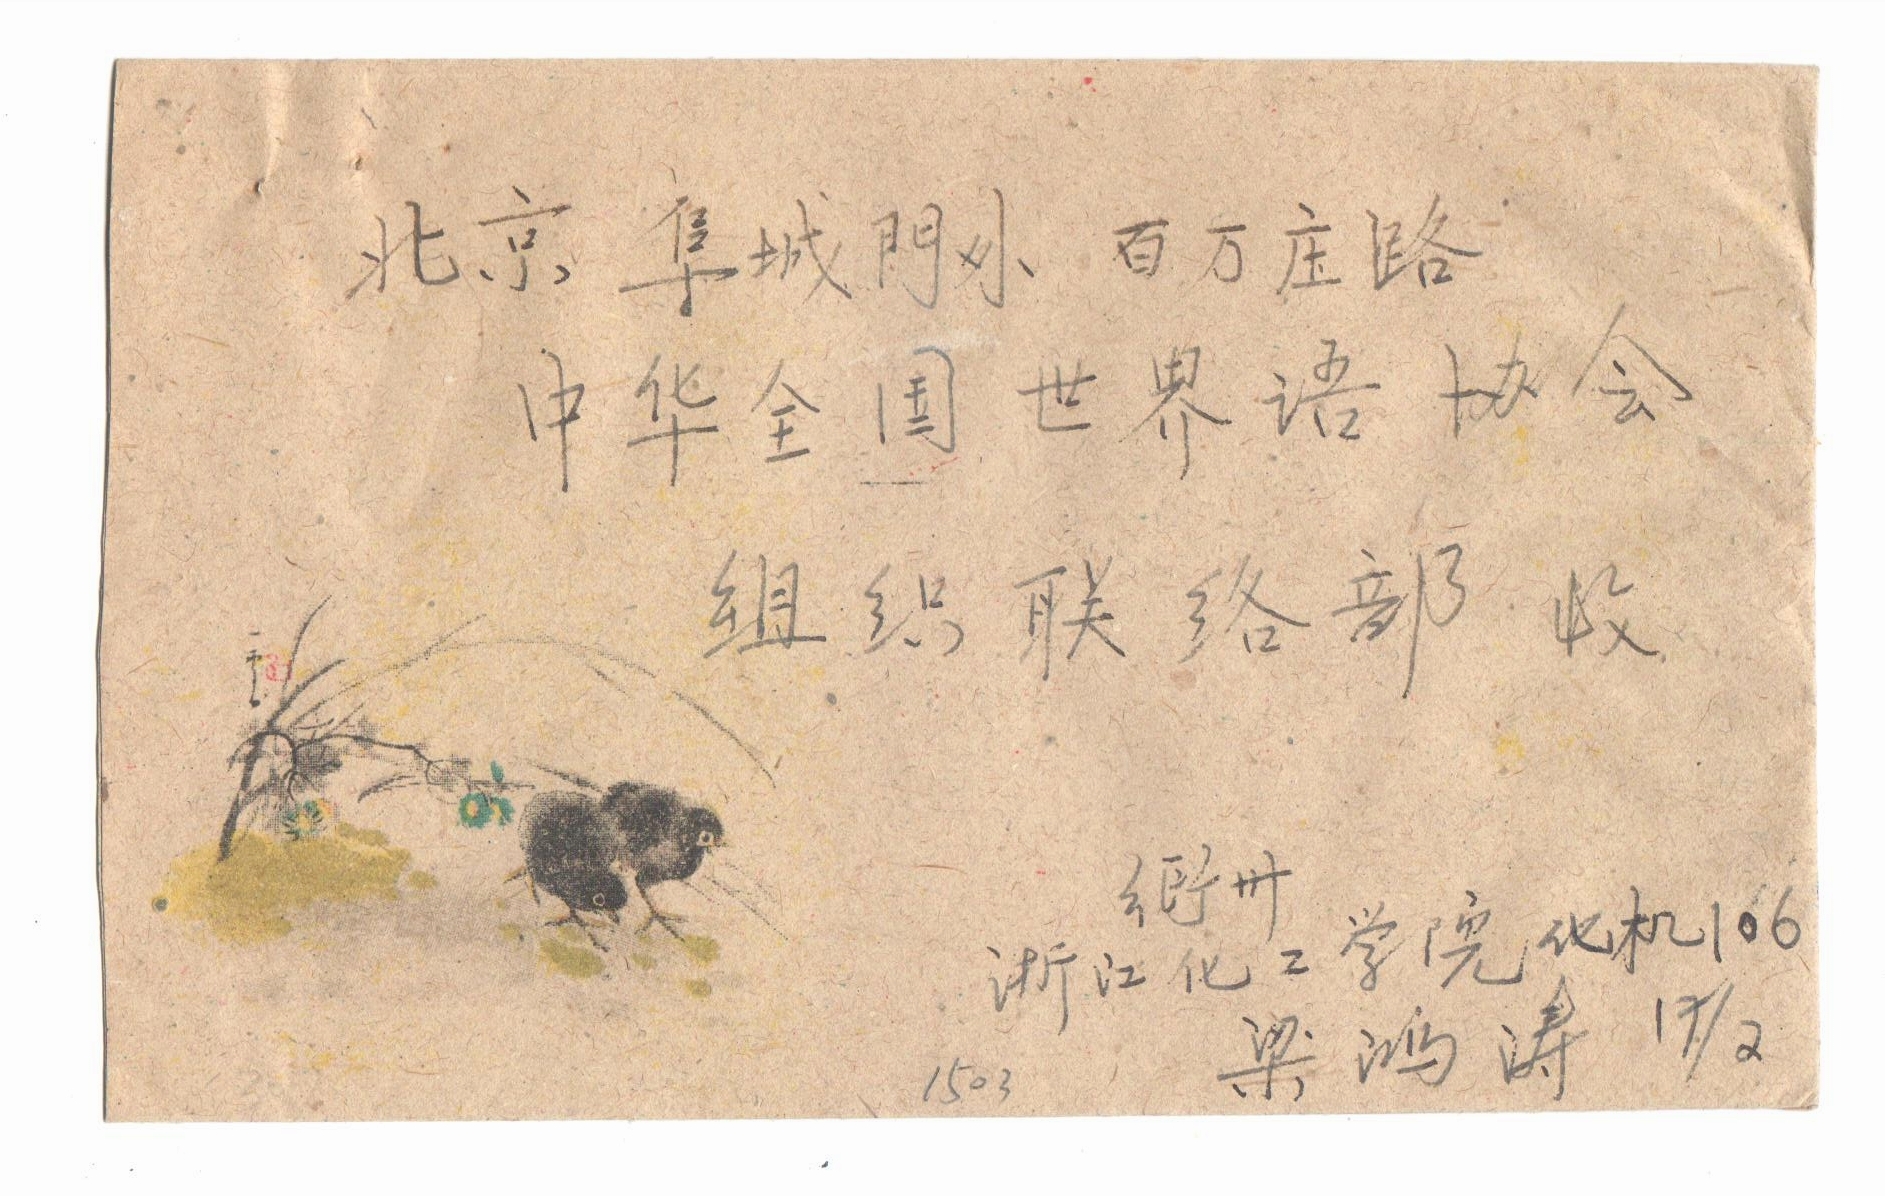 北京 阜城門外 百万庄路
中华全国世界语协会
组织联络部 收
衢州
浙江化工学院化机106
梁鸿涛 17/2
1503